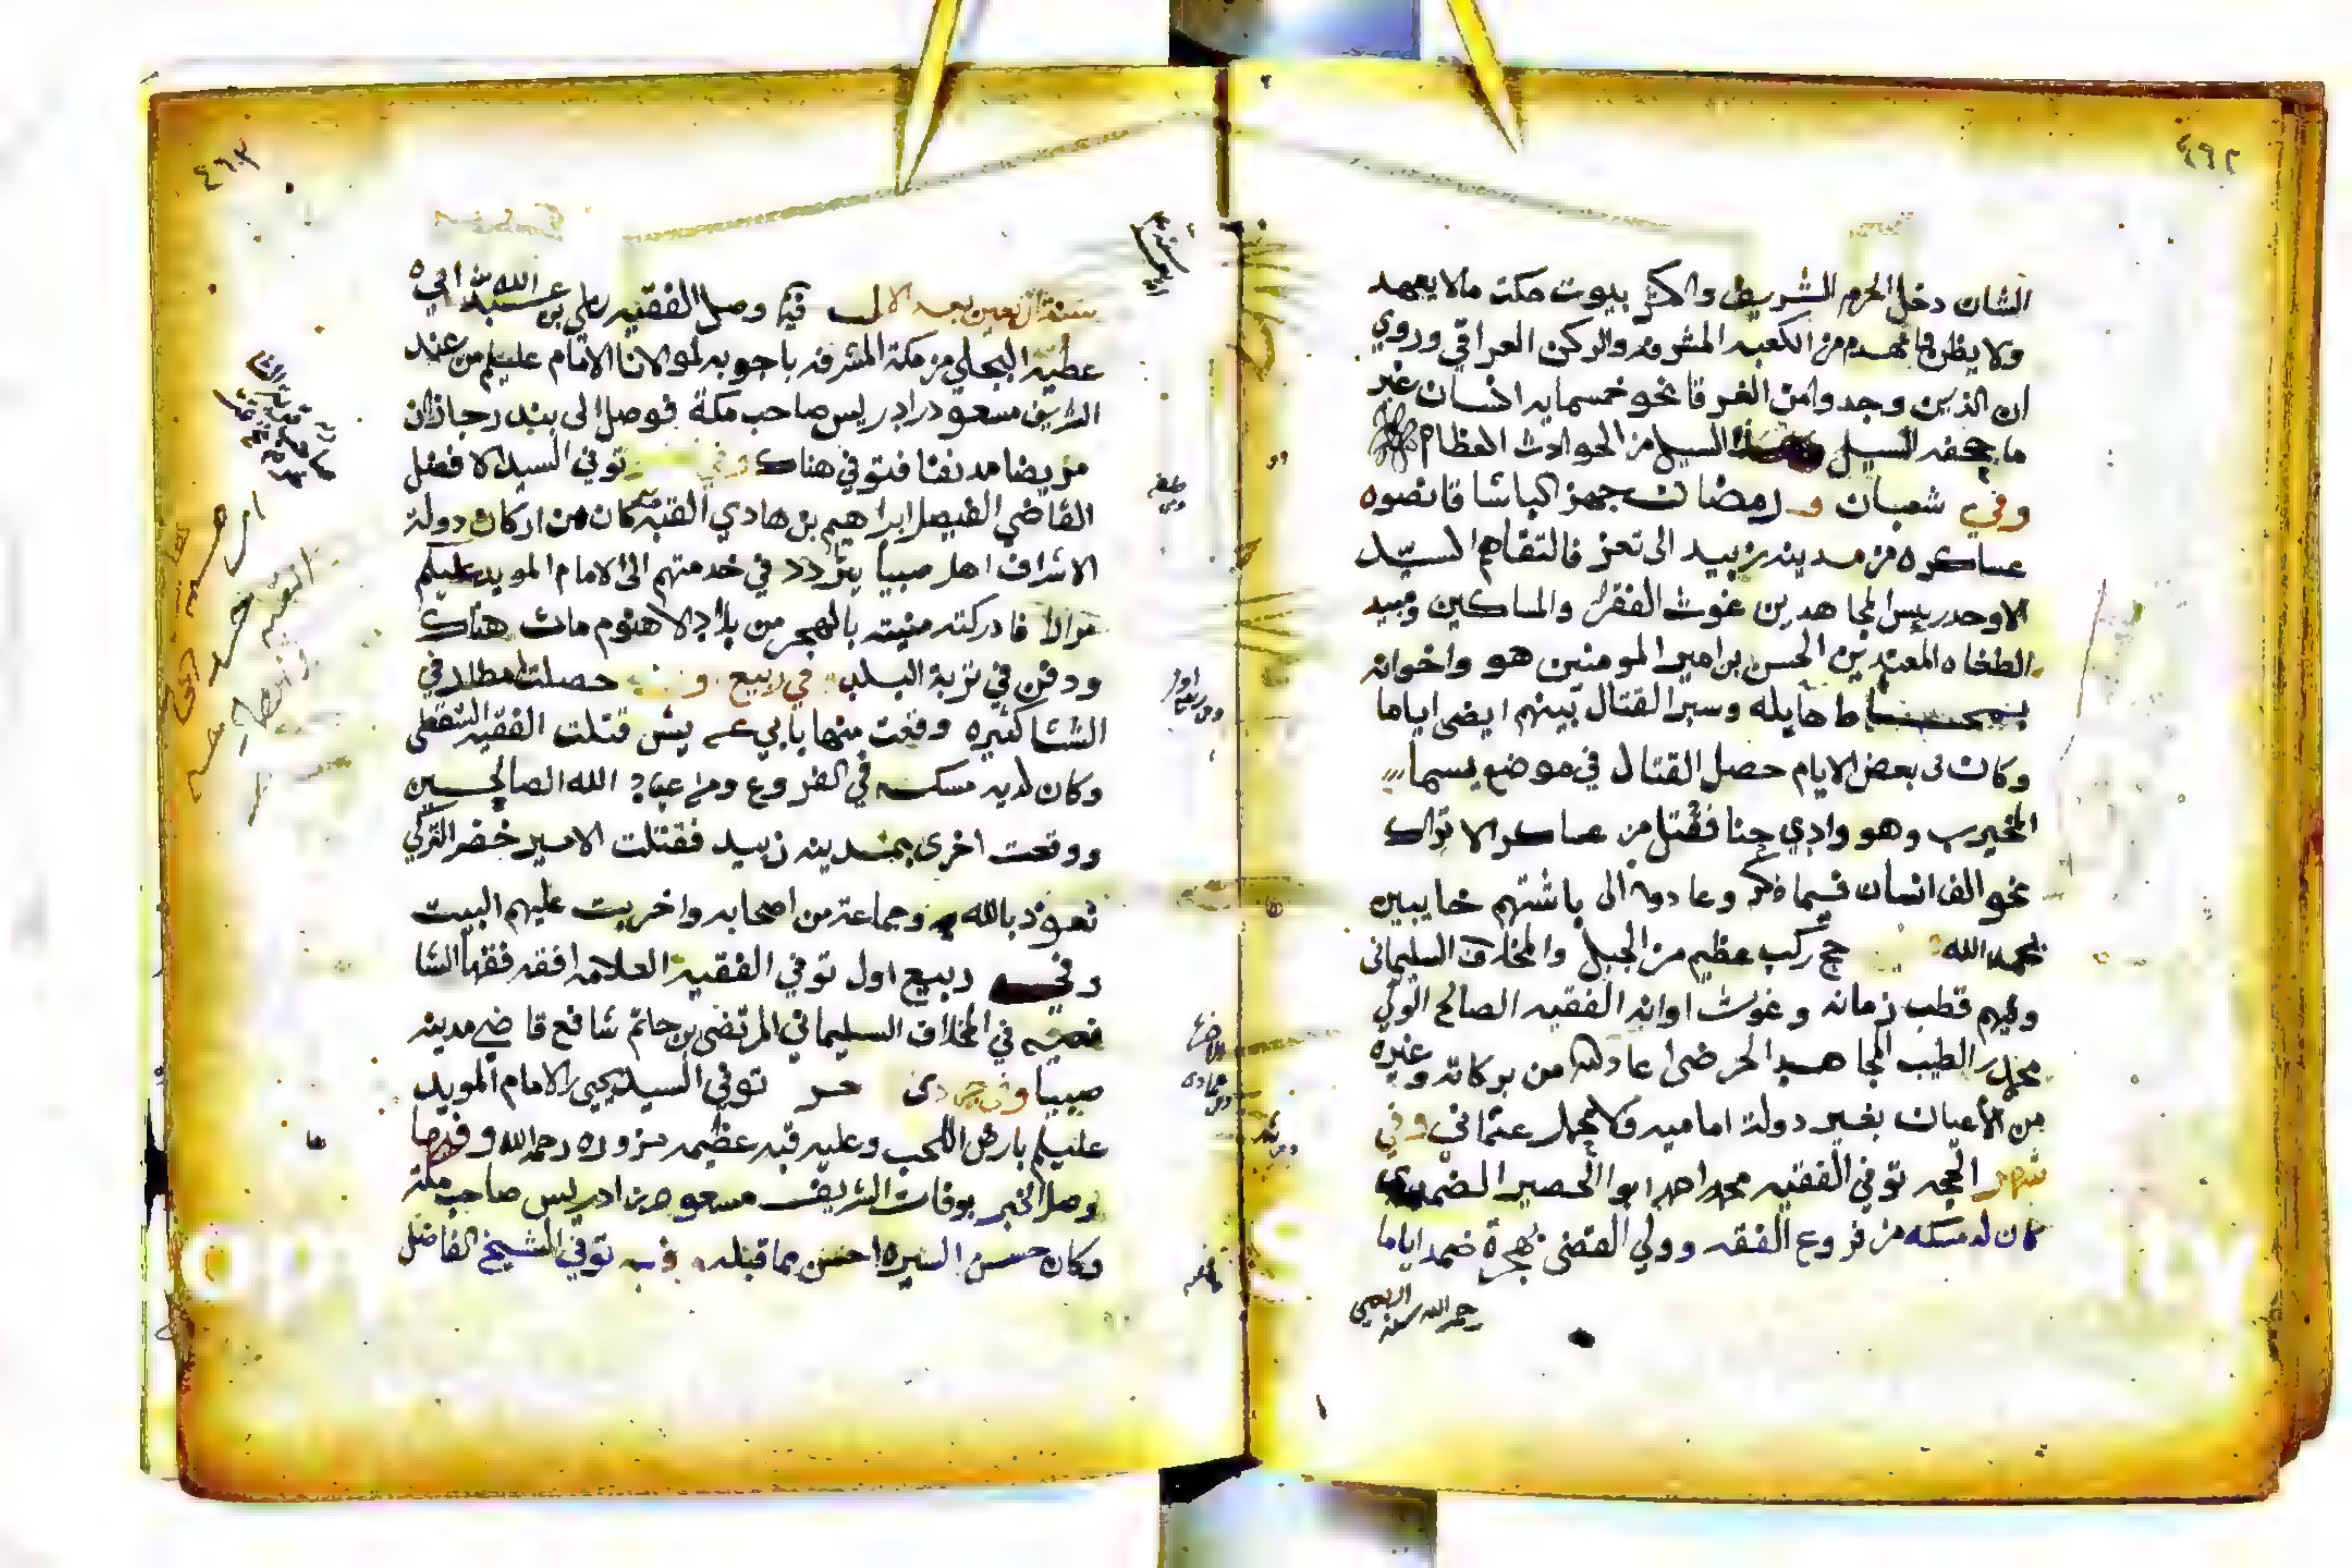 ٤٦٢
الشان دخل الحرم الشريف واكثر بيوت مكة مالا يعهد
ولا يظن فانهدم من الكعبه المشرفه والركن العراقي وروي
ان الذين وجدوا من الغرقا نحو خمسمايه انسان غير
ما جحفه السيل السيل من الحوادث العظام
وفي شعبان و رمضان جهز الباشا قانصوه
عساكره من مدينه زبيد الى تعز فالتقاهم السيد
الاوحد رييس المجاهدين غوث الفقرا والمساكين ومبيد
الطغاه المعتدين الحسن بن امير المومنين هو واخوانه
بمحاط هايله وسبر القتال بينهم ايضى اياما
وكان في بعض الايام حصل القتال في موضع يسما
الخيرب وهو وادي حنا فقتل من عساكر الاتراك
نحو الف انسان فيما ذكر وعادوا الى باشتهم خايبين
بحمد الله حج ركب عظيم من الجبل والمخلاف السليماني
وفيهم قطب زمانه وغوث اوانه الفقيه الصالح الولي
محمد الطيب المجاهد الحرضى اعاد الله من بركاته وغيره
من الاعيان بغير دولة اماميه ولا محمل عثماني وفي
شهر الحجه توفي الفقيه محمد احمد ابو الحصير الضمدي
كان له مسكه من فروع الفقه وولي القضى بهجرة ضمد اياما
رحمه الله
٤٦٣
سنة اربعين بعد الالف فيها وصل الفقيه علي بن عبد الله بن ابي
عطيه البجلي من مكة المشرفه باجوبه لمولانا الامام عليلم من عند
الشريف مسعود بن ادريس صاحب مكة فوصل الى بندر جازان
مريضا مدنفا فتوفي هناك وفي توفي السيد الافضل
القاضي الفيصل ابراهيم بن هادي القبه كان من اركان دولة
الاشراف اهل صبيا يتردد في خدمتهم الى الامام المويد عليلم
مرارا فادركته منيته بالهجر من بلاد الاهنوم مات هناك
ودفن في تربة البلد في ربيع حصلت امطار في
الشتا كثيره وقعت منها بابي عريش قتلت الفقيه
وكان لديه مسكه في الفروع ومن عباد الله الصالحين
ووقعت اخرى بمدينه زبيد فقتلت الامير خضر التركي
نعوذ بالله وجماعة من اصحابه واخربت عليهم البيت
وفي ربيع اول توفي الفقيه العلامه افقه فقها الشا
فعيه في المخلاف السليماني المرتضى بن حاتم شافع قاضي مدينه
صبيا وفي جمادى توفي السيد يحيى الامام المويد
عليلم بارض اللحب وعليه قبه عظيمه مزوره رحمه الله وفيها
وصل الخبر بوفات الشريف مسعود بن ادريس صاحب مكة
وكان حسن السيره احسن مما قبله توفي الشيخ الفاضل